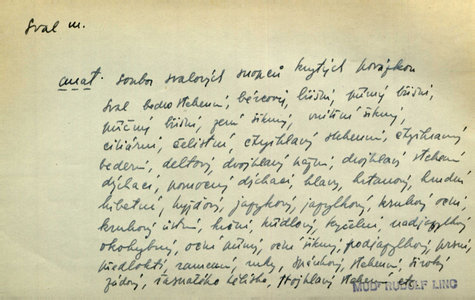 Sval m.
anat. soubor svalových snopců krytých povázkou
Sval bedrostehenní, bércový, břišní, přímý břišní,
příčný břišní, zevní šikmý, vnitřní šikmý,
ciliární, čelistní, čtyřhlavý stehenní, čtyřhranný
bederní, deltový, dvojhlavý pažní, dvojhlavý stehenní
dýchací, pomocný dýchací, hlavy, hrtanový, hrudní
hřbetní, hýžďový, jazykový, jazylkový, kruhový oční,
kruhový ústní, krční, křídlový, kyčelní nadjazylkový
okohybný, oční přímý, oční šikmý, podjazylkový, prsní,
předloktí, ramenní, ruky, stehenní, široký
zádový, trojhlavý stehenní atp.
MUDr RUDOLF LING